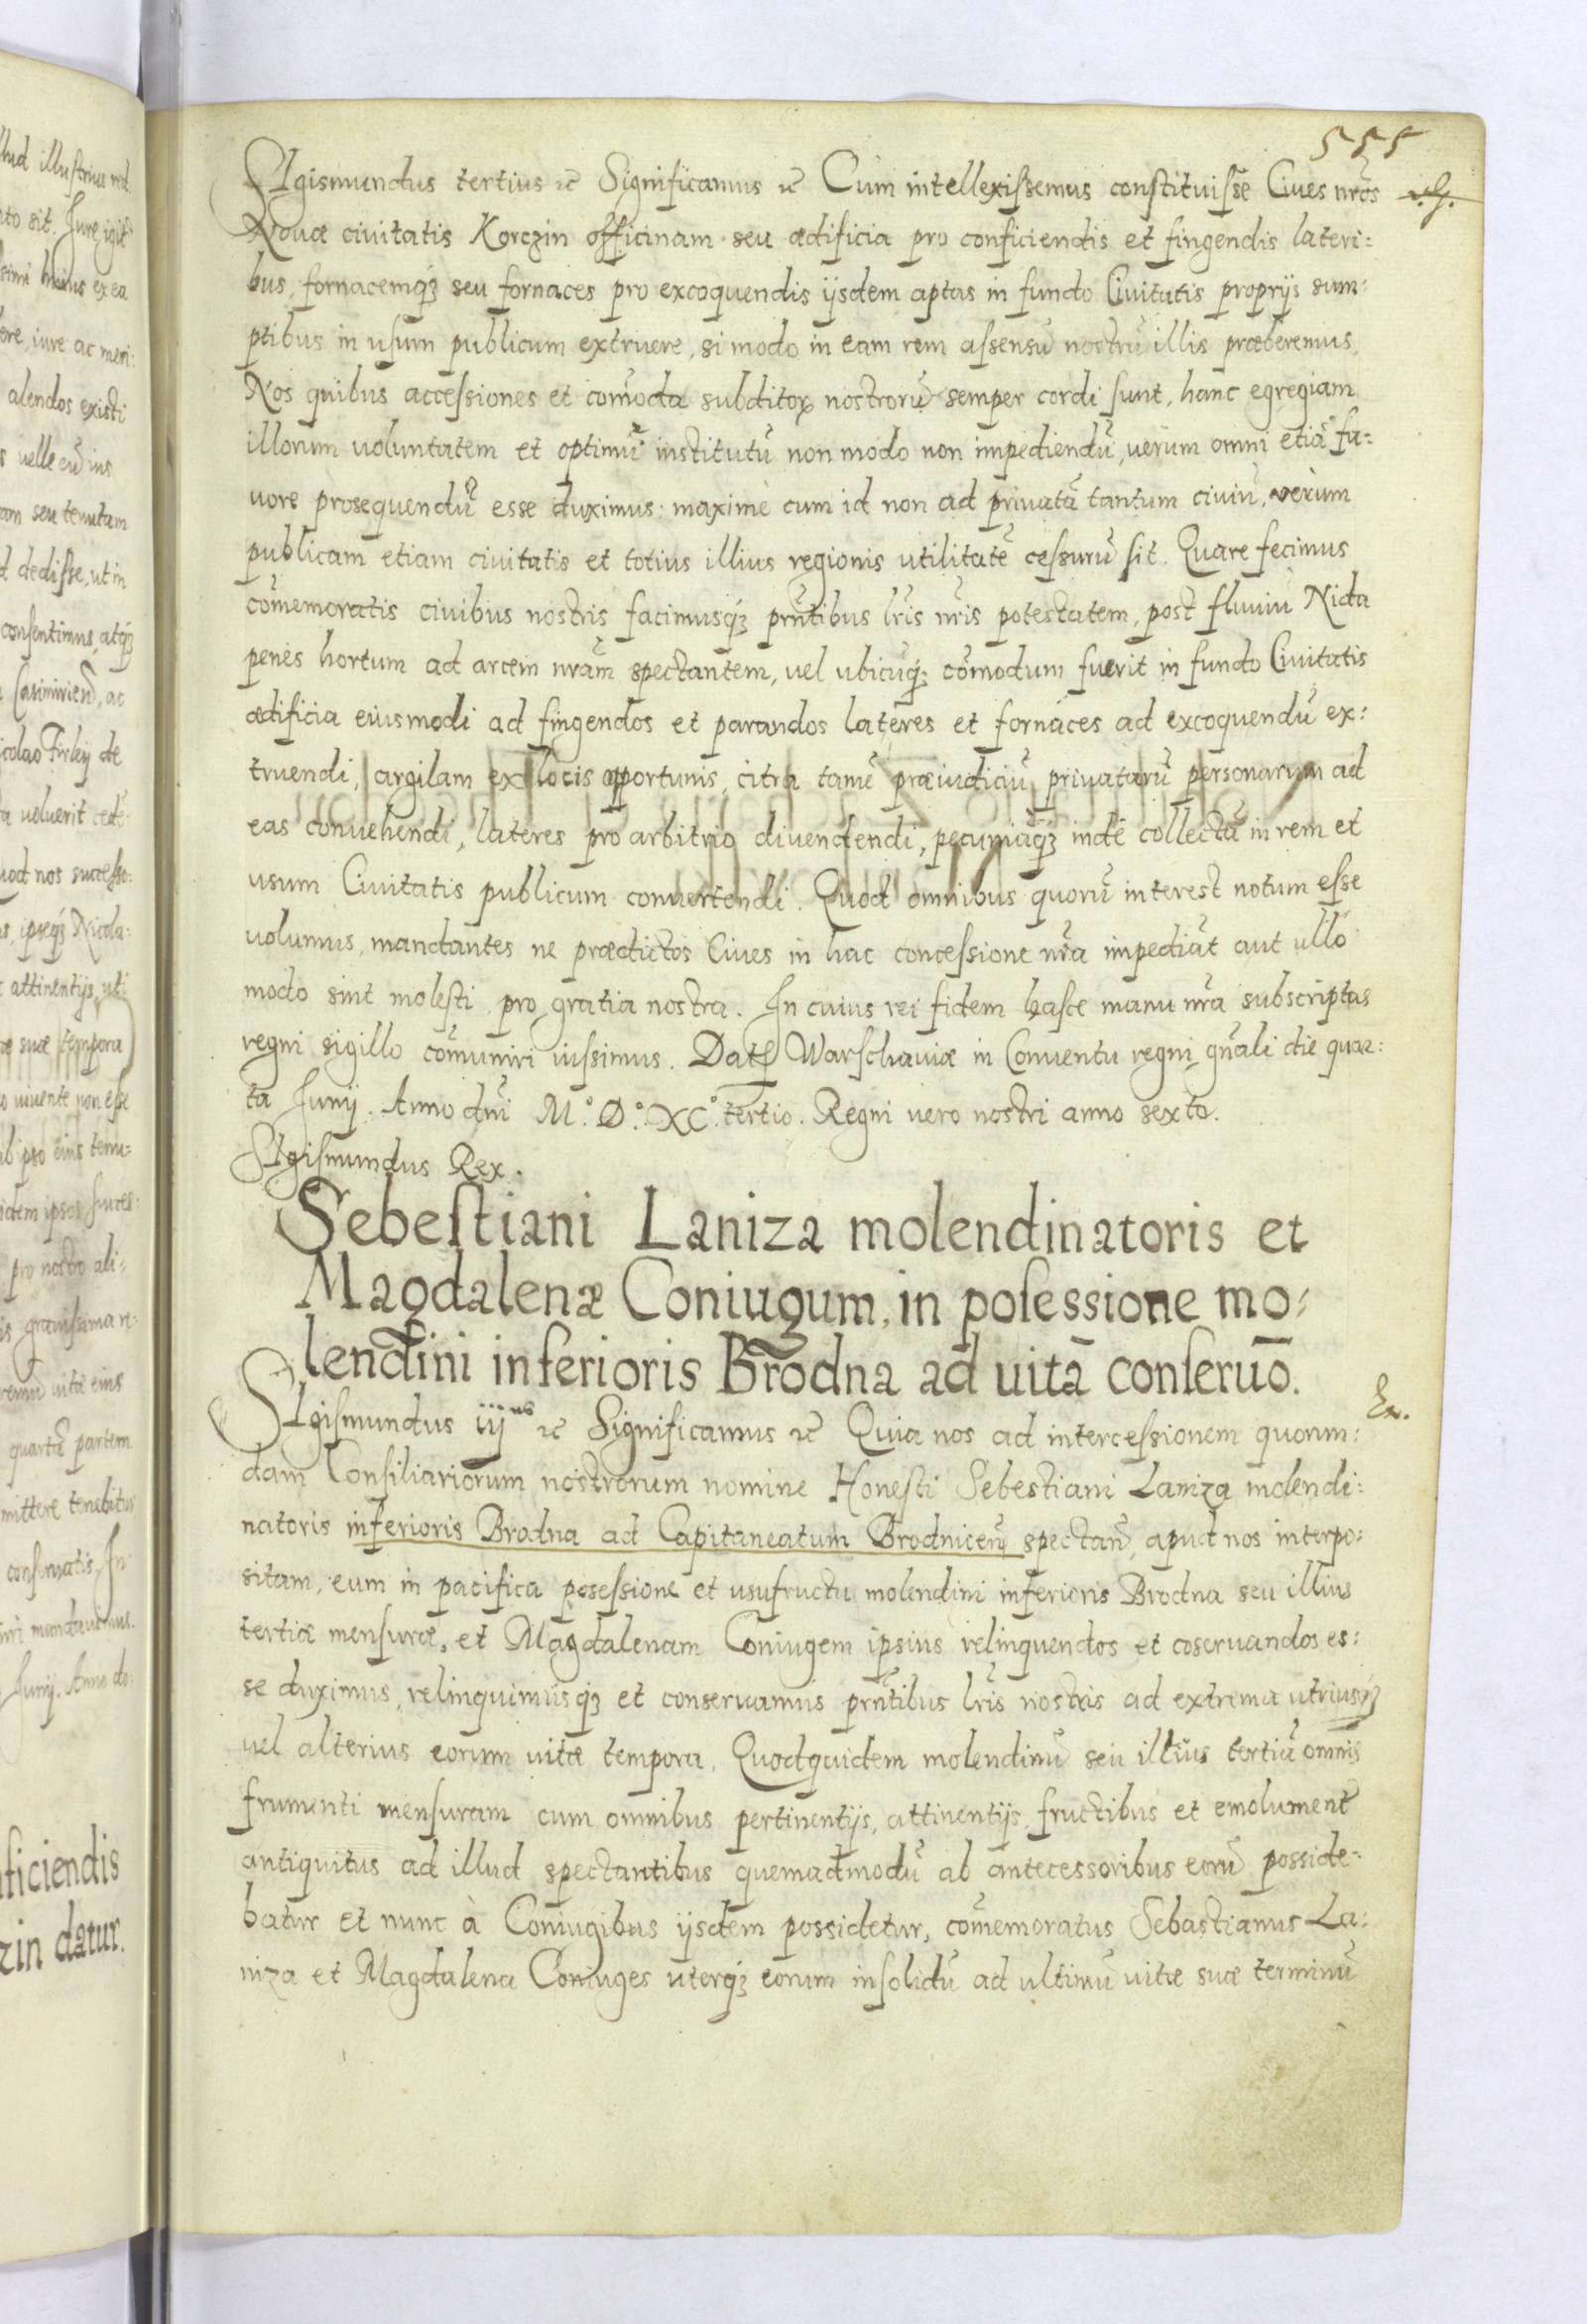 555
SIgismundus tertius ꝛc Significamus ꝛc Cum intellexissemus constituisse Ciues nr̃os
Nouæ ciuitatis Korczin officinam seu ædificia pro conficiendis et fingendis lateri:
bus, fornacemqꝫ seu fornaces pro excoquendis ijsdem aptas in fundo Ciuitatis proprijs sum:
ptibus in usum publicum extruere, si modo in eam rem assensũ nostrũ illis præberemus,
Nos quibus accessiones et com̃oda subditoꝝ nostrorũ semper cordi sunt, hanc egregiam
illorum uoluntatem et optimũ institutũ non modo non impediendũ, uerum omni etiã fa:
uore prosequendũ esse duximus: maximè cum id non ad priuatã tantum ciuiũ, uerùm
publicam etiam ciuitatis et totius illius regionis utilitatẽ cessurũ sit. Quare fecimus
com̃emoratis ciuibus nostris facimusqꝫ prñtibus lr̃is nr̃is potestatem, post fluuiũ Nida
penès hortum ad arcem nrãm spectantem, uel ubicũqꝫ com̃odum fuerit in fundo Ciuitatis
ædificia eiusmodi ad fingendos et parandos lateres et fornaces ad excoquendũ ex:
truendi, argilam ex locis opportunis, citra tamẽ præiudiciũ priuatarũ personarum ad
eas conuehendi, lateres pro arbitrio diuendendi, pecuniãqꝫ indè collectã in rem et
usum Ciuitatis publicum conuertendi. Quod omnibus quorũ interest notum esse
uolumus, mandantes ne prædictos Ciues in hac concessione nr̃a impediãt aut ullo
modo sint molesti pro gratia nostra. In cuius rei fidem hasce manu nr̃a subscriptas
regni sigillo com̃uniri iussimus. Datꝭ Warschauiæ in Conuentu regni gñali die quar:
ta Junij. Anno dñi M.° D.° XC.° tertio. Regni uero nostri anno sexto.
SIgismundus Rex.
Sebestiani Laniza molendinatoris et
Magdalenæ Coniugum, in posessione mo:
lendini inferioris Brodna ad uitã conseruõ.
Ex.
SIgismundus iijus ꝛc Significamus ꝛc Quia nos ad intercessionem quorum:
dam Consiliariorum nostrorum nomine Honesti Sebestiani Laniza molendi:
natoris inferioris Brodna ad Capitaneatum Brodniceñ spectañ, apud nos interpo:
sitam, eum in pacifica posessione et usufructu molendini inferioris Brodna seu illius
tertiæ mensuræ, et Magdalenam Coniugem ipsius relinquendos et coseruandos es:
se duximus, relinquimusqꝫ et conseruamus prñtibus lr̃is nostris ad extrema utriusqꝫ
uel alterius eorum uitæ tempora. Quodquidem molendinũ seu illius tertiã omnis
frumenti mensuram cum omnibus pertinentijs, attinentijs, fructibus et emolument̃
antiquitus ad illud spectantibus quemadmodũ ab antecessoribus eorũ posside:
batur et nunc à Coniugibus ijsdem possidetur, com̃emoratus Sebastianus La:
niza et Magdalena Coniuges uterqꝫ eorum insolidũ ad ultimũ uitæ suæ terminũ